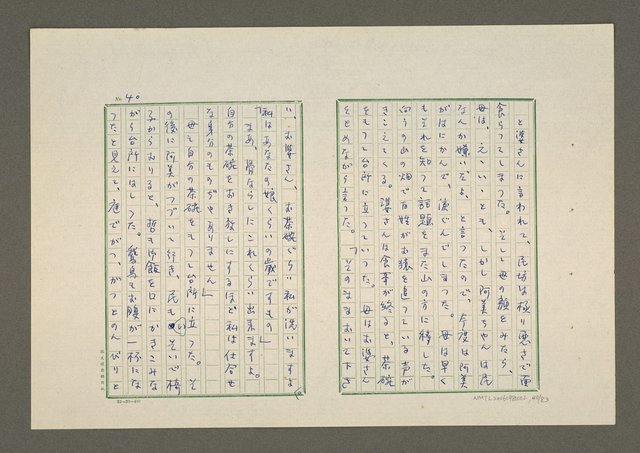 と婆さんに言われて、民坊は極り悪さで面
食らつてしまつた。そして母の顔をみたら、
母は、え、いゝとも、しかし阿美ちやんは民
なんか嫌いだよ、と言つたので、今度は阿美
がはにかんで、俯ぐんでしまつた。母は早く
もそれを知つて話題をまた山の方に移した。
向うの山の畑で百姓がお猿を追つている声が
きこえてくる。婆さんは食事が終ると、茶碗
をもつて台所に立つていつた。母はお婆さん
をとめながら言つた。「そのまゝおいて下さ
No. 40
い、お婆さん、お茶碗ぐらい私が洗いますよ
「私はあなたの娘くらいの歳ですもの」
「まあ、骨ならしにこれくらい出来ますよ。
自分の茶碗をおき放しにするほど私は仕合せ
な身分のものぢやありません」
母も自分の茶碗をもつて台所に立つた。そ
の後に阿美がつづいて行き、民もそいで椅
子からおりると、哲も御飯を口にかきこみな
がら台所にはしつた。鵞鳥もお腹が一杯にな
つたと見えて、庭でがつ、がつとのんびりと
NMTL20060980002, 40/83